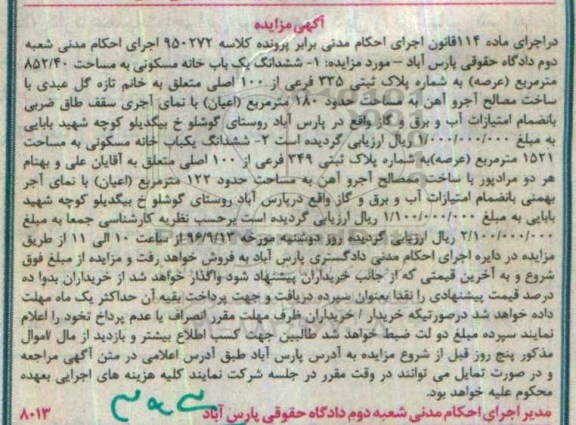 آگهی مزایده
دراجرای ماده ۱۱۴قانون اجرای احکام مدنی برابر پرونده کلاسه ۹۵۰۲۷۲ اجرای احکام مدنی شعبه
دوم دادگاه حقوقی پارس آباد – مورد مزایده: ۱- ششدانگ یک باب خانه مسکونی به مساحت ۸۵۲/۴۰
مترمربع (عرصه) به شماره پلاک ثبتی ۳۳۵ فرعی از ۱۰۰ اصلی متعلق به خانم تازه گل عبدی با
ساخت مصالح آجرو آهن به مساحت حدود ۱۸۰ مترمربع (اعیان) با نمای آجری سقف طاق ضربی
بانضمام امتیازات آب و برق و گاز واقع در پارس آباد روستای گوشلو خ بیگدیلو کوچه شهید بابایی
به مبلغ ۱/۰۰۰/۰۰۰/۰۰۰ ریال ارزیابی گردیده است ۲- ششدانگ یکباب خانه مسکونی به مساحت
۱۵۲۱ مترمربع (عرصه)به شماره پلاک ثبتی ۳۴۹ فرعی از ۱۰۰ اصلی متعلق به آقایان علی و بهنام
هر دو مرادپور با ساخت ممصالح آجرو آهن به مساحت حدود ۱۲۲ مترمربع (اعیان) با نمای آجر
بهمنی بانضمام امتیازات آب و برق و گاز واقع درپارس آباد روستای گوشلو خ بیگدیلو کوچه شهید
بابایی به مبلغ ۱/۱۰۰/۰۰۰/۰۰۰ ریال ارزیابی گردیده است برحسب نظریه کارشناسی جمعا به مبلغ
۲/۱۰۰/۰۰۰/۰۰۰ ریال ارزیابی گردیده روز دوشنبه مورخه ۹۶/۹/۱۳ از ساعت ۱۰ الی ۱۱ از طریق
مزایده در دایره اجرای احکام مدنی دادگستری پارس آباد به فروش خواهد رفت و مزایده از مبلغ فوق
شروع و به آخرین قیمتی که از جانب خریداران پیشنهاد شود واگذار خواهد شد از خریداران بدوا ده
درصد قیمت پیشنهادی را نقدا بعنوان سپرده دریافت و جهت پرداخت بقیه آن حداکثر یک ماه مهلت
داده خواهد شد درصورتیکه خریدار / خریداران ظرف مهلت مقرر انصراف یا عدم پرداخ تخود را اعلام
نمایند سپرده مبلغ دو لت ضبط خواهد شد طالبین جهت کسب اطلاع بیشتر و بازدید از مال /اموال
مذکور پنج روز قبل از شروع مزایده به آدرس پارس آباد طبق آدرس اعلامی در متن آگهی مراجعه
و در صورت تمایل می توانند در وقت مقرر در جلسه شرکت نمایند کلیه هزینه های اجرایی بعهده
محکوم علیه خواهد بود.
مدیر اجرای احکام مدنی شعبه دوم دادگاه حقوقی پارس آباد ۸۰۱۳